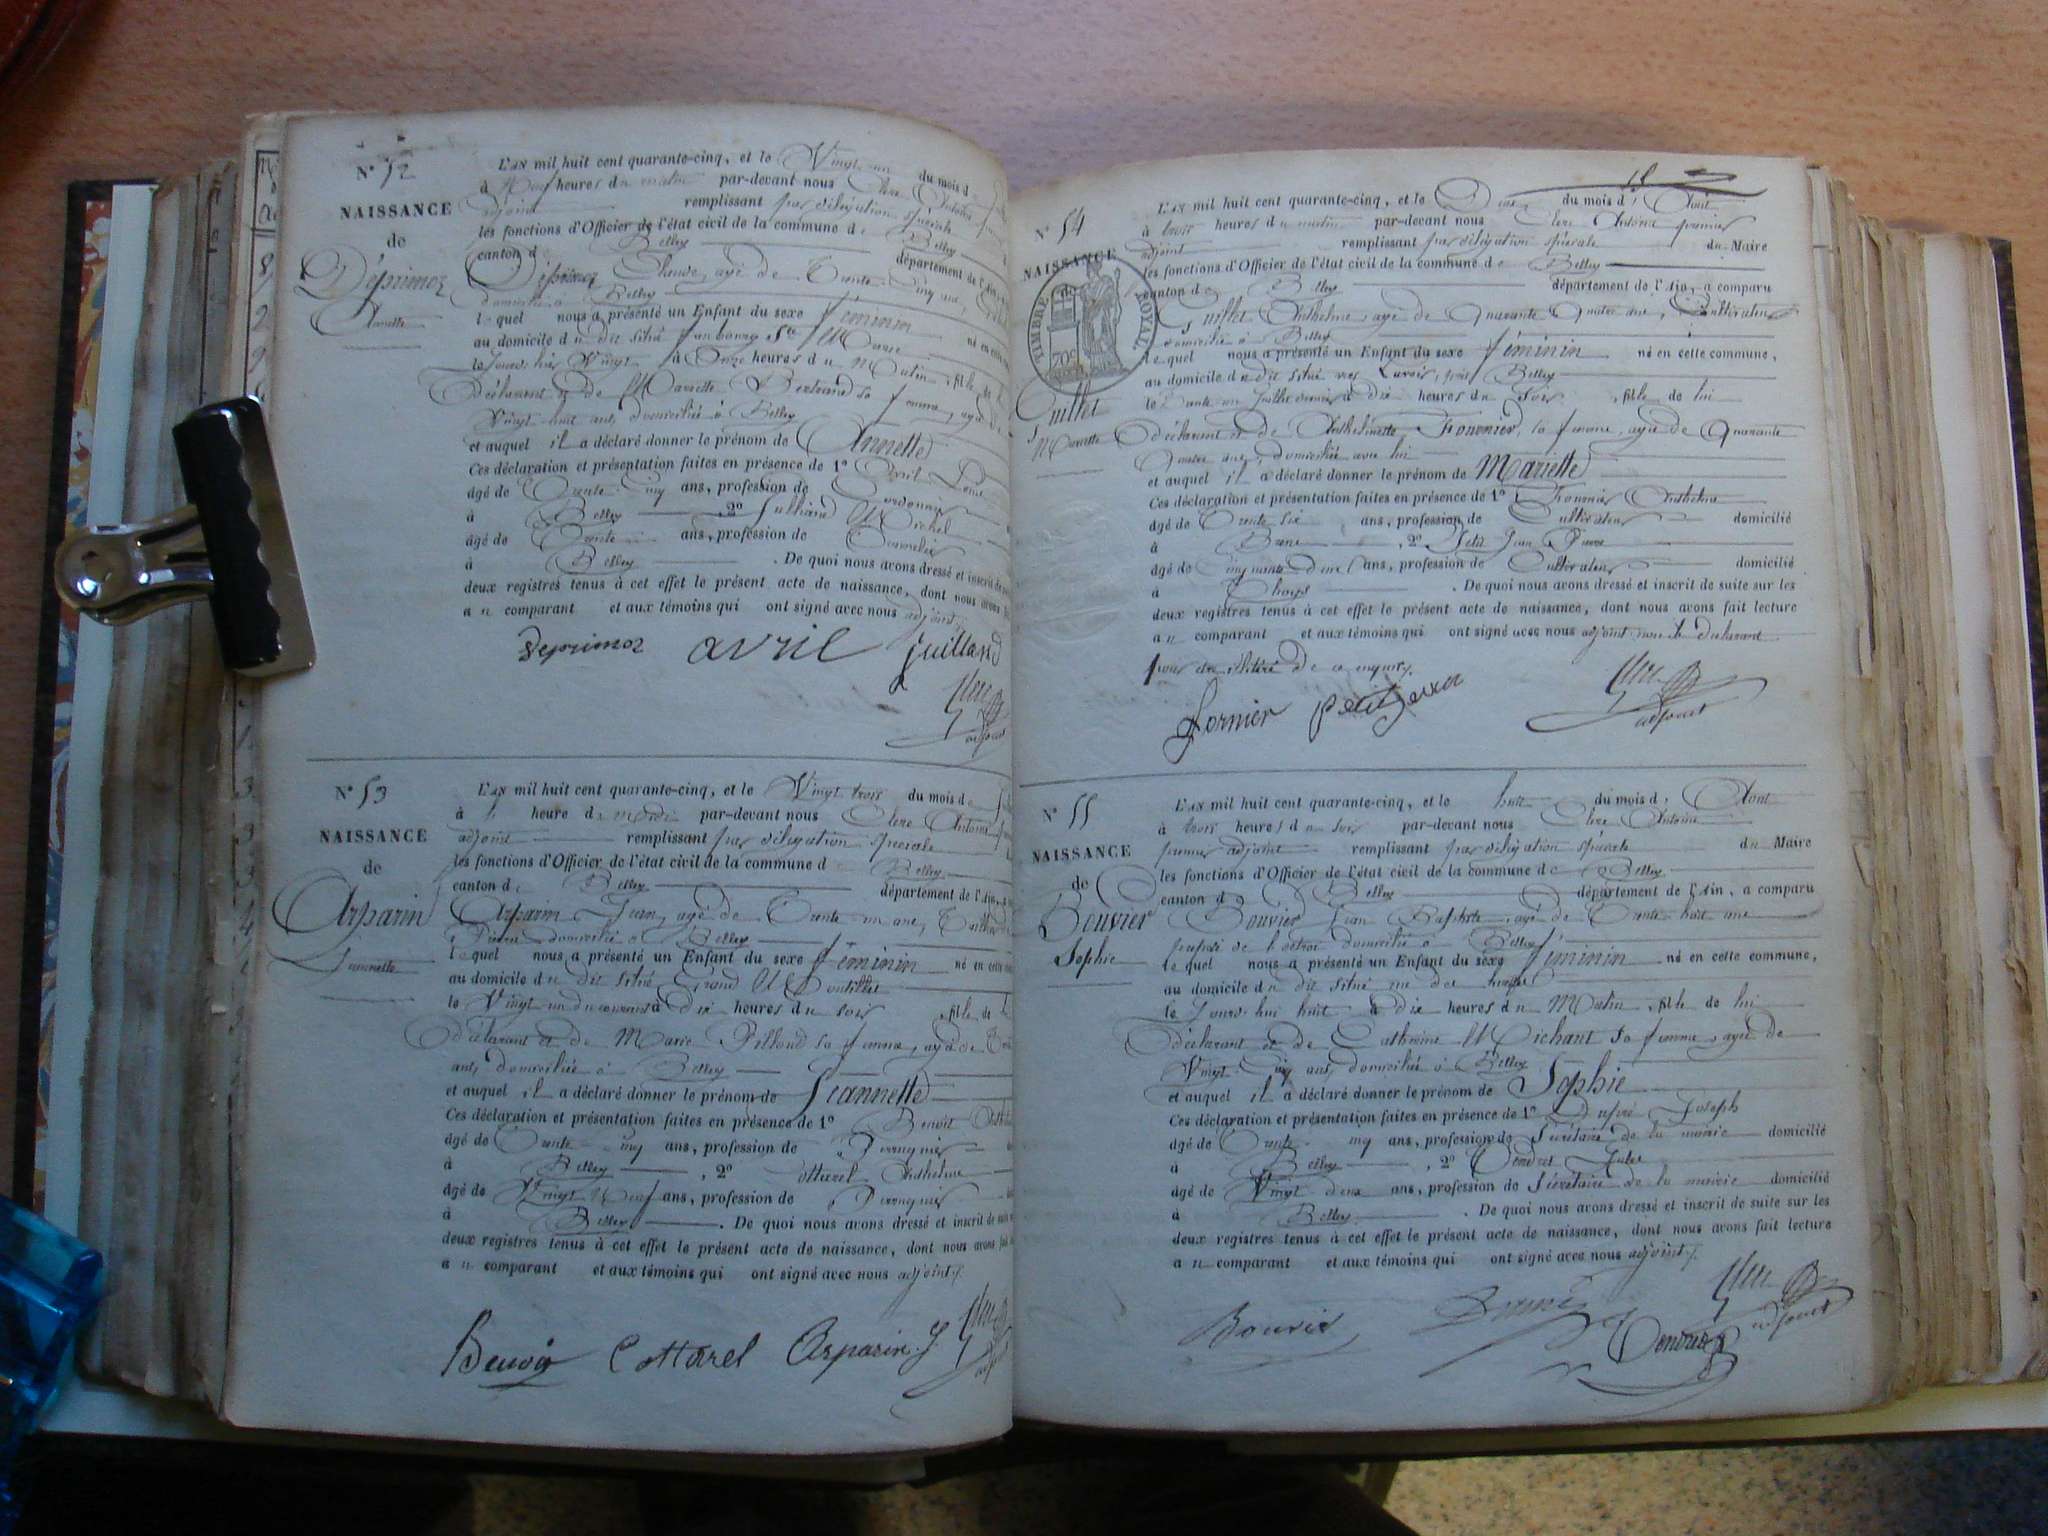 N° 52
NAISSANCE
de
Déprimoz
Annette
L'AN mil huit cent quarante-cinq, et le Vingt un du mois d
à Neuf heures du matin par-devant nous Clerc Antoine
adjoint remplissant par délégation spéciale
les fonctions d'Officier de l'état civil de la commune de Belley
canton de Belley département de l'Ain,
Déprimoz Claude, agé de Trente cinq ans,
domicilié à Belley
lequel nous a présenté un Enfant du sexe féminin
au domicile du dit situé faubourg Ste Marie né en cette
le Jourd'hier Vingt à Onze heures du Matin, fille de
Déclarant et de Mariette Bertrand sa femme, agée de
Vingt huit ans, domiciliée à Belley
et auquel il a déclaré donner le prénom de Annette
Ces déclaration et présentation faites en présence de 1° Avril
âgé de Trente cinq ans, profession de Cordonnier
à Belley, 2° Julliand Michel
âgé de Trente ans, profession de
à Belley. De quoi nous avons dressé et inscrit de
deux registres tenus à cet effet le présent acte de naissance, dont nous avons
au comparant et aux témoins qui ont signé avec nous adjoint
Deprimoz avril juilland
Clerc
adjoint
N° 53
NAISSANCE
de
Arparin
Jeannette
L'AN mil huit cent quarante-cinq, et le Vingt trois du mois de
à heure de midi par-devant nous Clerc Antoine
adjoint remplissant par délégation spéciale
les fonctions d'Officier de l'état civil de la commune d Belley
canton de Belley département de l'Ain,
Arparin Jean, agé de Trente un ans, Tailleur
Pierre domicilié à Belley
lequel nous a présenté un Enfant du sexe féminin né en cette
au domicile du dit situé Grand
le Vingt un du courant à dix heures du soir, fille de
Déclarant et de Marie Billoud sa femme, agée de
ans, domiciliée à Belley
et auquel il a déclaré donner le prénom de Jeannette
Ces déclaration et présentation faites en présence de 1° Benoit
âgé de Trente cinq ans, profession de Perruquier
à Belley, 2° Cottarel Anthelme
âgé de Vingt Neuf ans, profession de Perruquier
à Belley. De quoi nous avons dressé et inscrit de suite
deux registres tenus à cet effet le présent acte de naissance, dont nous avons fait
au comparant et aux témoins qui ont signé avec nous adjoint
Benoit Cottarel Arparin J.
Clerc
adjoint
18
N° 54
NAISSANCE
de
TIMBRE ROYAL
70c
Guillet
Mariette
L'AN mil huit cent quarante-cinq, et le Deux du mois d'Aout
à trois heures du matin par-devant nous Clerc Antoine premier
adjoint remplissant par délégation spéciale du Maire
les fonctions d'Officier de l'état civil de la commune de Belley
canton de Belley département de l'Ain, a comparu
Guillet Anthelme, agé de Quarante Quatre ans, Cultivateur
domicilié à Belley
lequel nous a présenté un Enfant du sexe féminin né en cette commune,
au domicile du dit situé, près Belley
le Trente un Juillet dernier à dix heures du Soir, fille de lui
déclarant et de Anthelmette Fournier, sa femme, agée de Quarante
Quatre ans, domiciliée avec lui
et auquel il a déclaré donner le prénom de Mariette
Ces déclaration et présentation faites en présence de 1° Fournier Anthelme
âgé de Trente six ans, profession de Cultivateur domicilié
à Brens, 2° Petit Jean Pierre
âgé de Cinquante deux ans, profession de Cultivateur domicilié
à. De quoi nous avons dressé et inscrit de suite sur les
deux registres tenus à cet effet le présent acte de naissance, dont nous avons fait lecture
au comparant et aux témoins qui ont signé avec nous adjoint non le déclarant
pour être illitéré de ce enquis.
fornier petit
Clerc
adjoint
N° 55
NAISSANCE
de
Bouvier
Sophie
L'AN mil huit cent quarante-cinq, et le huit du mois d'Aout
à trois heures du soir par-devant nous Clerc Antoine
premier adjoint remplissant par délégation spéciale du Maire
les fonctions d'Officier de l'état civil de la commune de Belley
canton d Belley département de l'Ain, a comparu
Bouvier Jean Baptiste, agé de Trente huit ans
préposé de l'octroi domicilié à Belley
lequel nous a présenté un Enfant du sexe féminin né en cette commune,
au domicile du dit situé rue des
le Jourd'hui huit à dix heures du Matin, fille de lui
déclarant et de Catherine Michaut sa femme, agée de
Vingt cinq ans, domiciliée à Belley
et auquel il a déclaré donner le prénom de Sophie
Ces déclaration et présentation faites en présence de 1° Dupré Joseph
âgé de Trente cinq ans, profession de Secrétaire de la mairie domicilié
à Belley, 2° Vendret Jules
âgé de Vingt deux ans, profession de Secrétaire de la mairie domicilié
à Belley. De quoi nous avons dressé et inscrit de suite sur les
deux registres tenus à cet effet le présent acte de naissance, dont nous avons fait lecture
au comparant et aux témoins qui ont signé avec nous adjoint
Clerc
adjoint
Bouvier